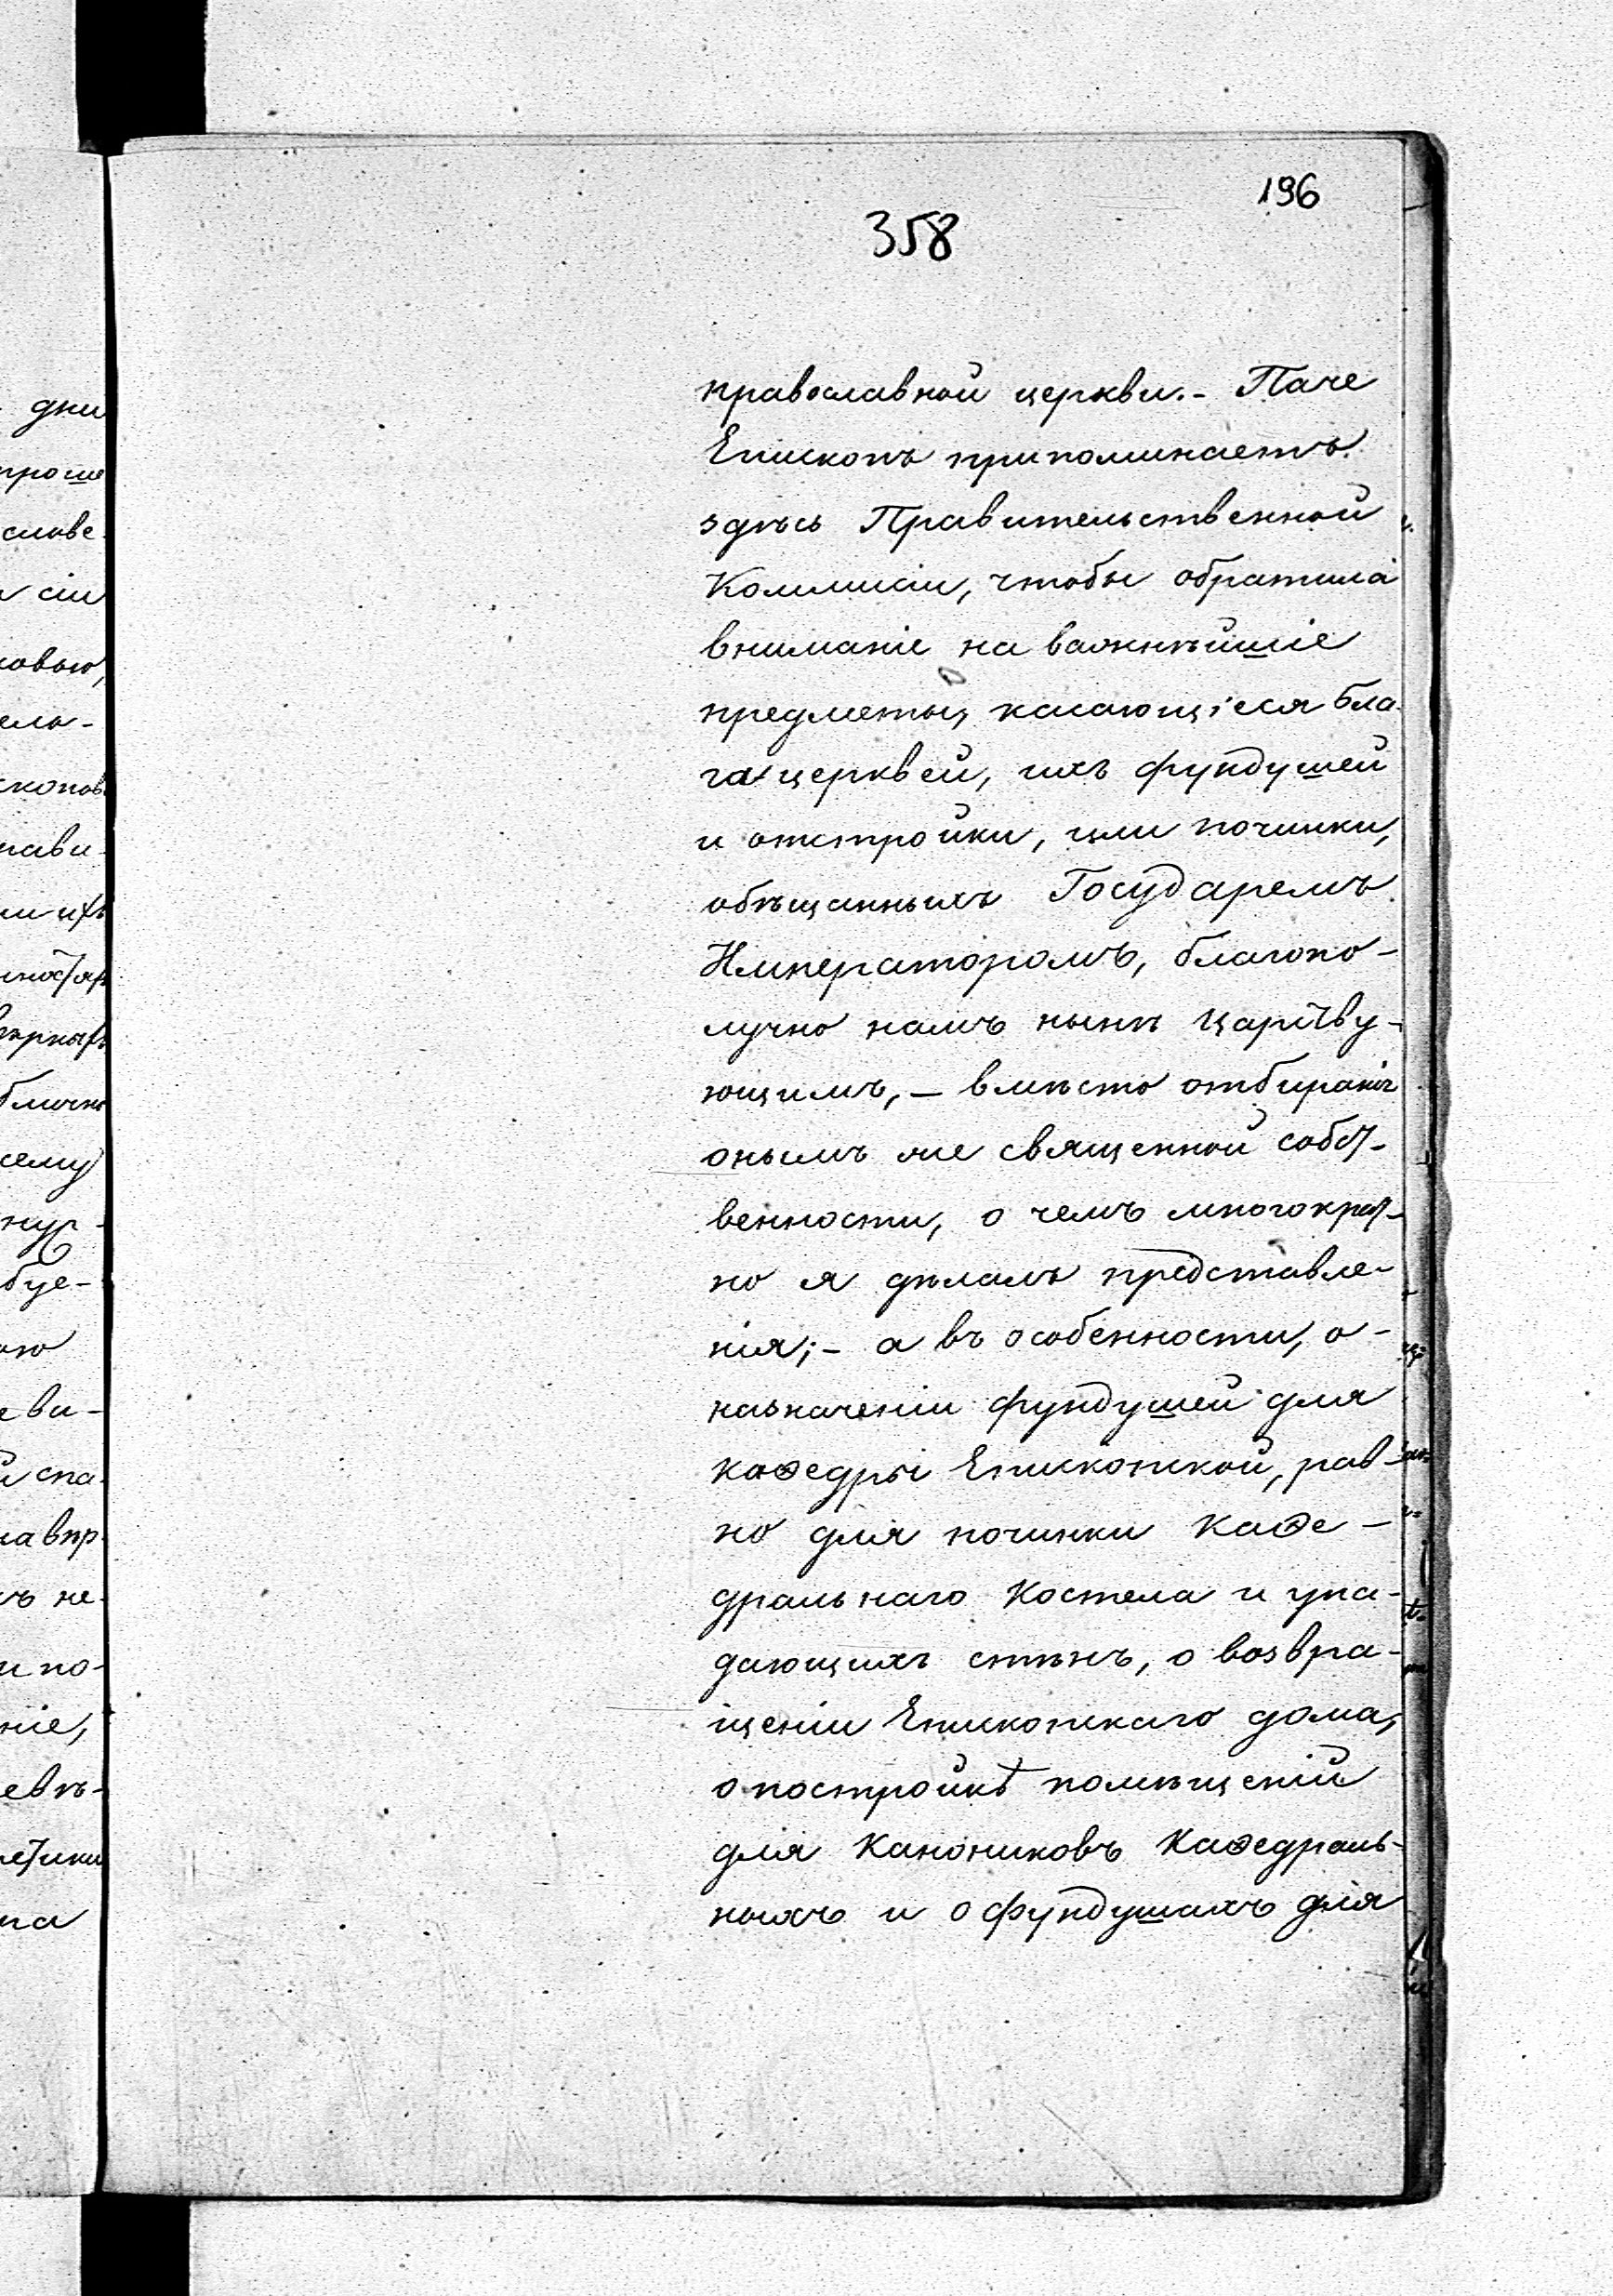 196
358
православной церкви.- Паче
Епископъ припоминаетъ
здѣсь Правительственной
Коммисіи, чтобы обратила
вниманіе на важнѣйшіе
предметы, касающіеся бла-
га церквей, ихъ фундушей
и отстройки, или починки,
обѣщанныхъ Государемъ
Императоромъ, благопо-
лучно намъ нынѣ Царству-
ющимъ, — вмѣсто отбиранія
онымъ же священной собст-
венности, о чемъ многократ-
но я дѣлалъ представле-
нія; - а въ особенности, о-
назначеніи фундушей для
каѳедры Епископской, рав-
но для починки Каѳе-
дральнаго Костела и упа-
дающихъ стѣнъ, о возвра-
щеніи Епископскаго дома,
о постройкѣ помѣщеній
для Канониковъ Каѳедраль-
ныхъ и о фундушахъ для